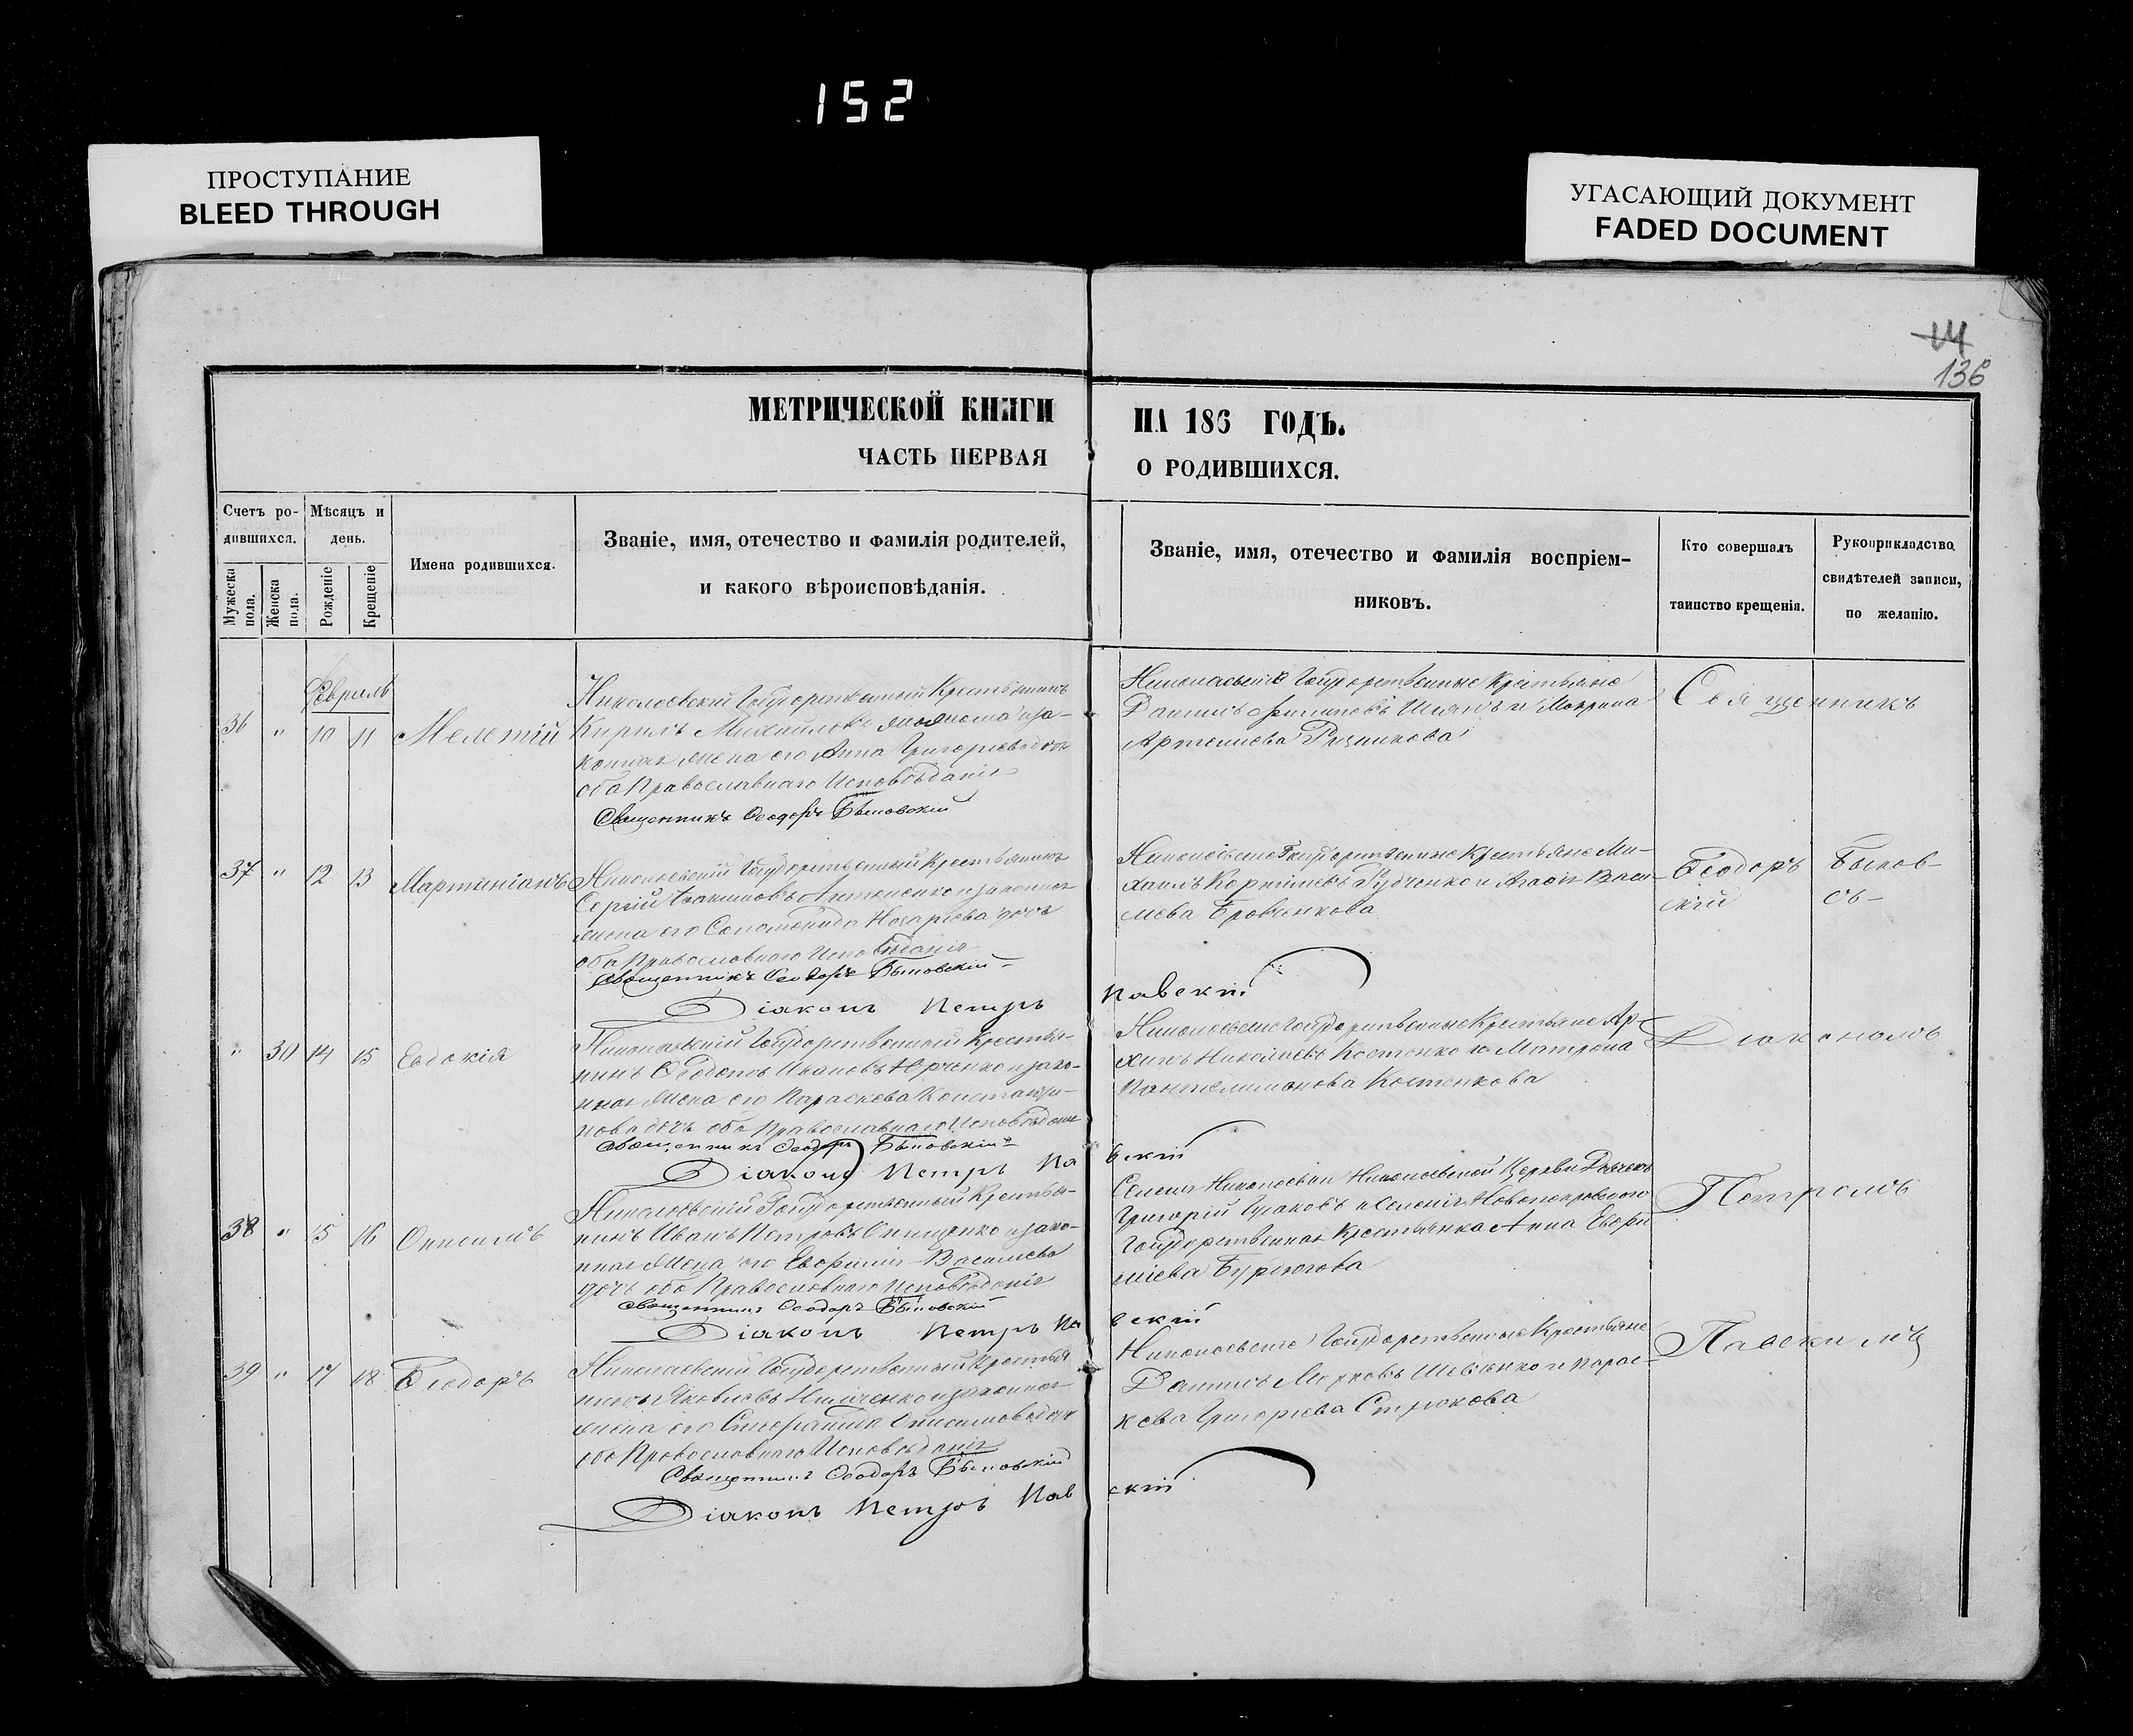 152
ПРОСТУПАНИЕ
BLEED THROUGH
УГАСАЮЩИЙ ДОКУМЕНТ
FADED DOCUMENT
14
136
МЕТРИЧЕСКОЙ КНИГИ НА 186 ГОДЪ.
ЧАСТЬ ПЕРВАЯ О РОДИВШИХСЯ.
Счетъ ро-
дившихся.
Мѣсяцъ и
день.
Мужеска пола.
Женска пола.
Рожденіе
Крещеніе
Имена родившихся.
Званіе, имя, отечество и фамилія родителей,
и какого вѣроисповѣданія.
Званіе, имя, отечество и фамилія воспріем-
никовъ.
Кто совершалъ
таинство крещенія.
Рукоприкладство
свидѣтелей записи,
по желанію.
Февраль
36 " 10 11 Мелетій
Николаевскій Государственный Крестьянинъ
Кирилъ Михайловъ и зако-
нная жена его Анна Григорьева дочь
оба Православнаго Исповѣданія
Священникъ Ѳеодоръ Быковскій
Николаевскіе Государственные Крестьяне
Даниилъ Филиповъ и Макрина
Артемиева
Священникъ
37 " 12 13 Мартиніанъ
Николаевскій Государственный Крестьянинъ
Сергій Антоненко и законная
жена его Соломонида Назарьева дочь
оба Православнаго Исповѣданія
Священникъ Ѳеодоръ Быковскій
Діаконъ Петръ Павскій
Николаевскіе Государственные Крестьяне Ми-
хаилъ Рудченко и Агафія Васи-
лева Бровченкова
Ѳеодоръ Быков-
скій
" 30 14 15 Евдокія
Николаевскій Государственный Крестья-
нинъ Ивановъ Юрченко и зако-
нная жена его Параскева Константи-
нова дочь оба Православнаго Исповѣданія
Священникъ Ѳеодоръ Быковскій
Діаконъ Петръ Павскій
Николаевскіе Государственные Крестьяне Ар-
хипъ Николаевъ Костенко и Матрона
Пантелимонова Костенкова
Діакономъ
38 " 15 16 Онисимъ
Николаевскій Государственный Крестья-
нинъ Иванъ Петровъ Онищенко и зако-
нная жена его Евфимія Василиева
дочь оба Православнаго Исповѣданія
Священникъ Ѳеодоръ Быковскій
Діаконъ Петръ Павскій
Селенія Николаевки Николаевской Церкви Дьячекъ
Григорій и Селенія Новопокровскаго
Государственная Крестьянка Анна Евфи-
міева
Петромъ
39 " 17 18 Ѳеодоръ
Николаевскій Государственный Крестья-
нинъ и законная
жена его Онисимова дочь
оба Православнаго Исповѣданія
Священникъ Ѳеодоръ Быковскій
Діаконъ Петръ Павскій
Николаевскіе Государственные Крестьяне
Даниилъ Марковъ Шевченко и Парас-
кева Григорьева Стрюкова
Павскимъ